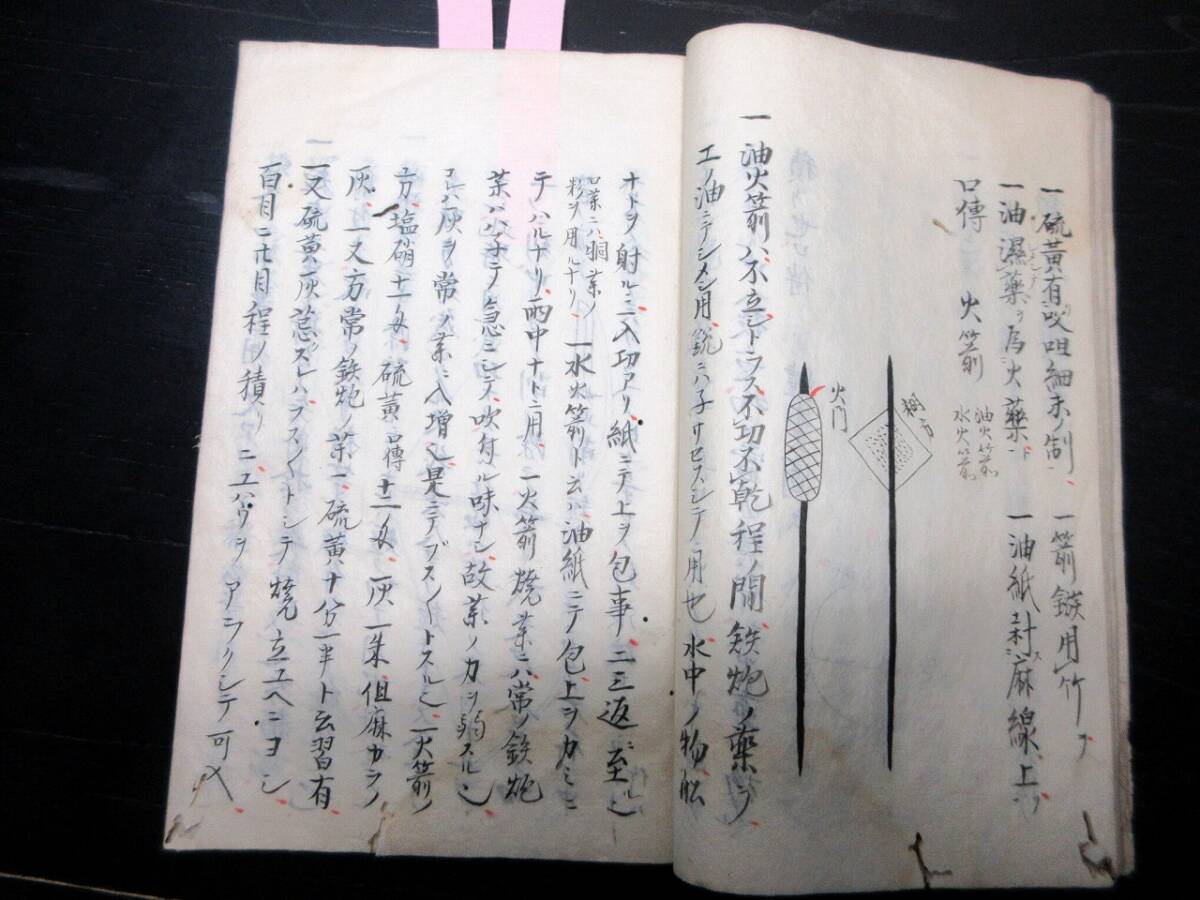 一硫黄有㕮咀細末ノ制、 一箭鏃用竹
一油濕薬ヲ為火薬 一油紙 麻線、上
口傳 火箭 油火箭 水火箭
樹脂
火門
一油火箭ハ不立シトラス不切不乾程ノ間鉄炮ノ薬ヲ
エノ油ニテシメシ用銃ニハ子サセスシテ用也水中ノ物船
ナトヲ射ルニ入切アリ紙ニテ上ヲ包事二三返ニ至ル
口薬ニハ胴薬ノ
粉ヲ用ルナリ 一水火箭ト云ハ油紙ニテ包上ヲカミニ
テハルナリ雨中ナトニ用、一火箭焼薬ニハ常ノ鉄炮
薬ハハ子テ急ニシテ吹付ル味ナシ故薬ノ力ヲ弱スル
コレハ灰ヲ常ノ薬ニハ増ス是ニテブス〱トスル 一火箭ノ
方、塩硝十一匁、硫黄 口傳十二匁、灰一朱但麻カラノ
灰、一又方常ノ鉄炮ノ薬ニ硫黄十分一半ト云習有
一又硫黄灰 スレハフス〱トシテ焼立ユヘニヨシ
百目ニ廿目程ノ積リニ